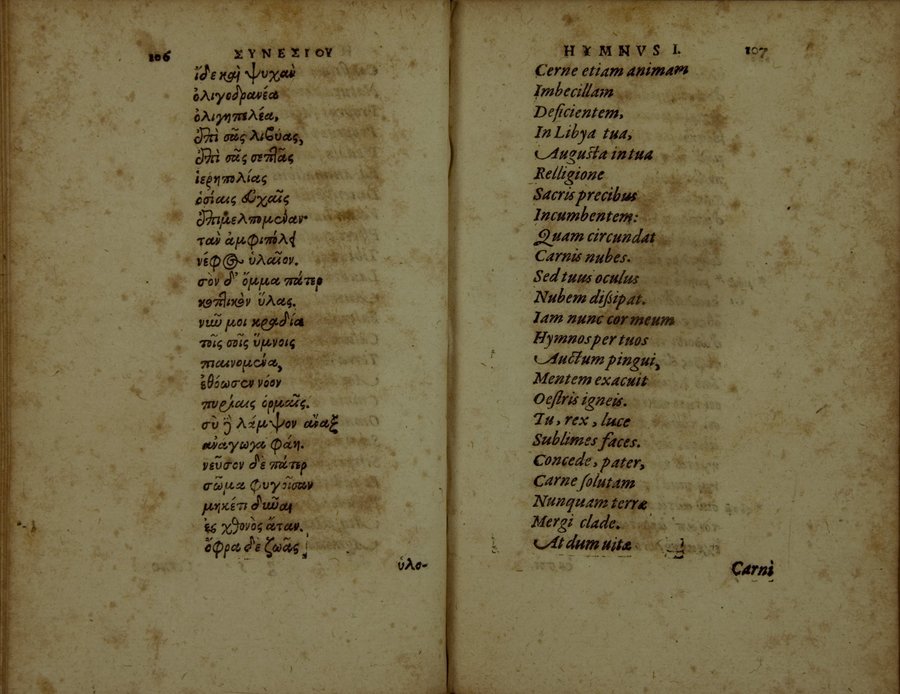 106 ΣΥΝΕΣΙΟΥ
ἴδε καὶ ψυχὰν
ὀλιγοδρανέα
ὀλιγηπελέα,
ἐπὶ σᾶς λιβύας,
ἐπὶ σᾶς σεπτᾶς
ἱερηπολίας
ὁσίαις εὐχαῖς
ἐπιμελπομέναν·
τὰν ἀμφιπολεῖ
νέφος ὑλαῖον.
σὸν δ' ὄμμα πάτερ
κοπτικὸν ὕλας.
νιῶ μοι κραδία
τοῖς σοῖς ὕμνοις
πιαινομένα,
ἐθόωσεν νόον
πυρίαις ὁρμαῖς.
σὺ δὲ λάμψον ἄναξ
ἀναγωγα φάη.
νεῦσον δὲ πάτερ
σῶμα φυγοῖσαν
μηκέτι δῦναι
ἐς χθονὸς ἄταν.
ὄφρα δὲ ζωᾶς
ὑλο-
HYMNVS I. 107
Cerne etiam animam
Imbecillam
Deficientem,
In Libya tua,
Augusta in tua
Relligione
Sacris precibus
Incumbentem:
Quam circundat
Carnis nubes.
Sed tuus oculus
Nubem dißipat.
Iam nunc cor meum
Hymnos per tuos
Auctum pingui,
Mentem exacuit
Oestris igneis.
Tu, rex, luce
Sublimes faces.
Concede, pater,
Carne solutam
Nunquam terræ
Mergi clade.
At dum uitæ
Carni